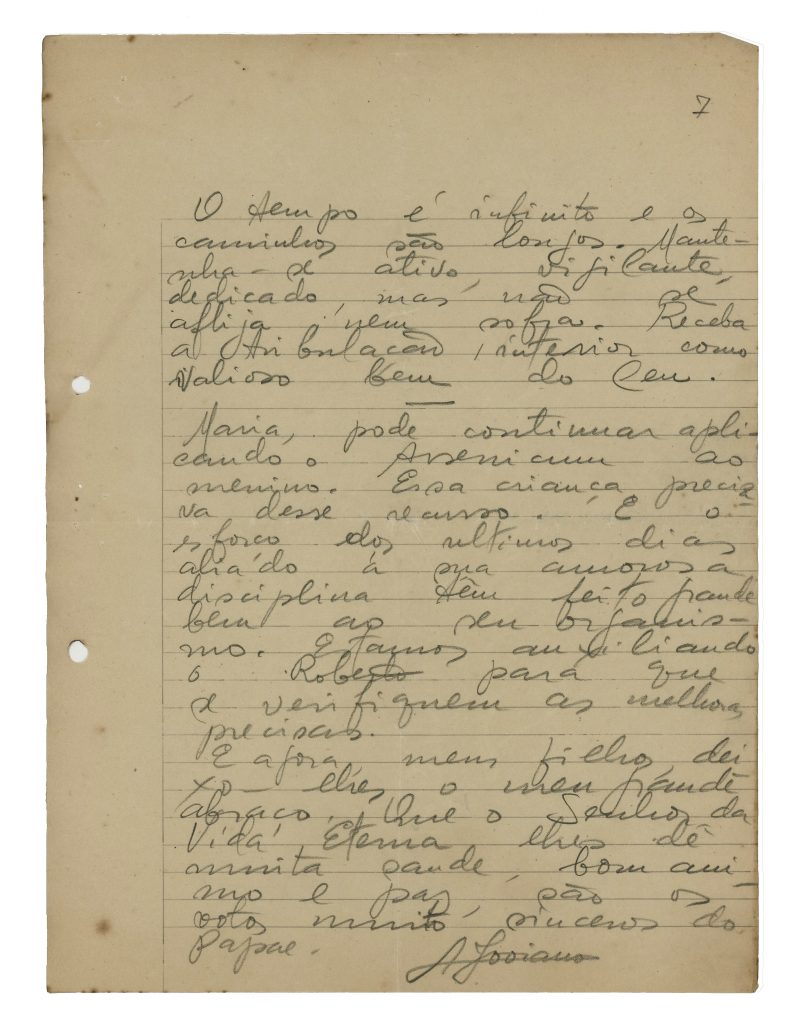 7
O tempo é infinito e os
caminhos são longos. Mante-
nha-se ativo, vigilante,
dedicado, mas não se
aflija nem sofra. Receba
a tribulação interior como
valioso bem do Ceu.
Maria, pode continuar apli-
cando o Arsenicum ao
menino. Essa criança preciza-
va desse recurso. E o
esforço dos ultimos dias
aliado á sua amorosa
disciplina têm feito grande
bem ao seu organis-
mo. Estamos auxiliando
o Roberto para que
se verifiquem as melhoras
precisas.
E agora, meus filhos, dei
xo-lhes o meu grande
abraço. Que o Senhor da
Vida Eterna lhes dê
muita saude, bom ani-
mo e paz, são os
votos muito sinceros do
Papae.